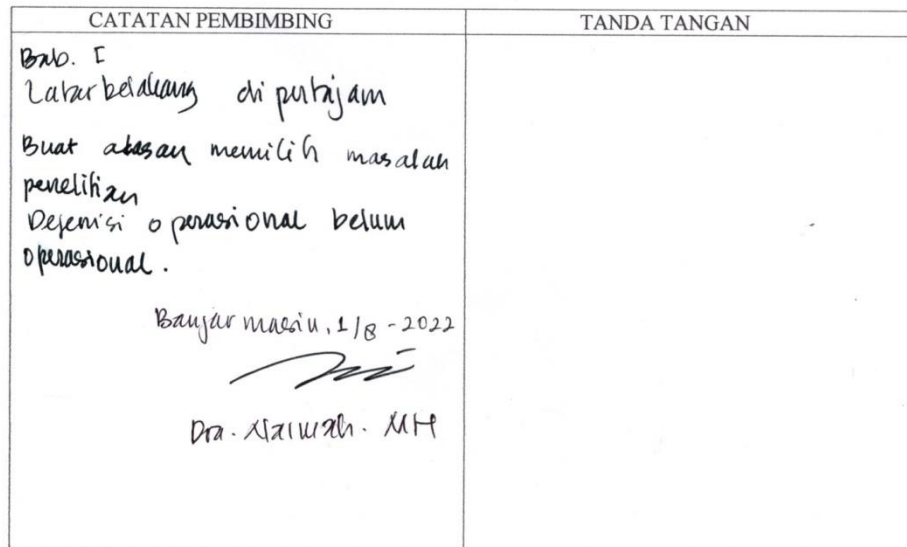 CATATAN PEMBIMBING
TANDA TANGAN
Bab. I
Latar belakang dipertajam
Buat alasan memilih masalah
penelitian
Defenisi operasional belum
operasional.
Banjarmasin, 1/8-2022
Dra. Naimah. MH